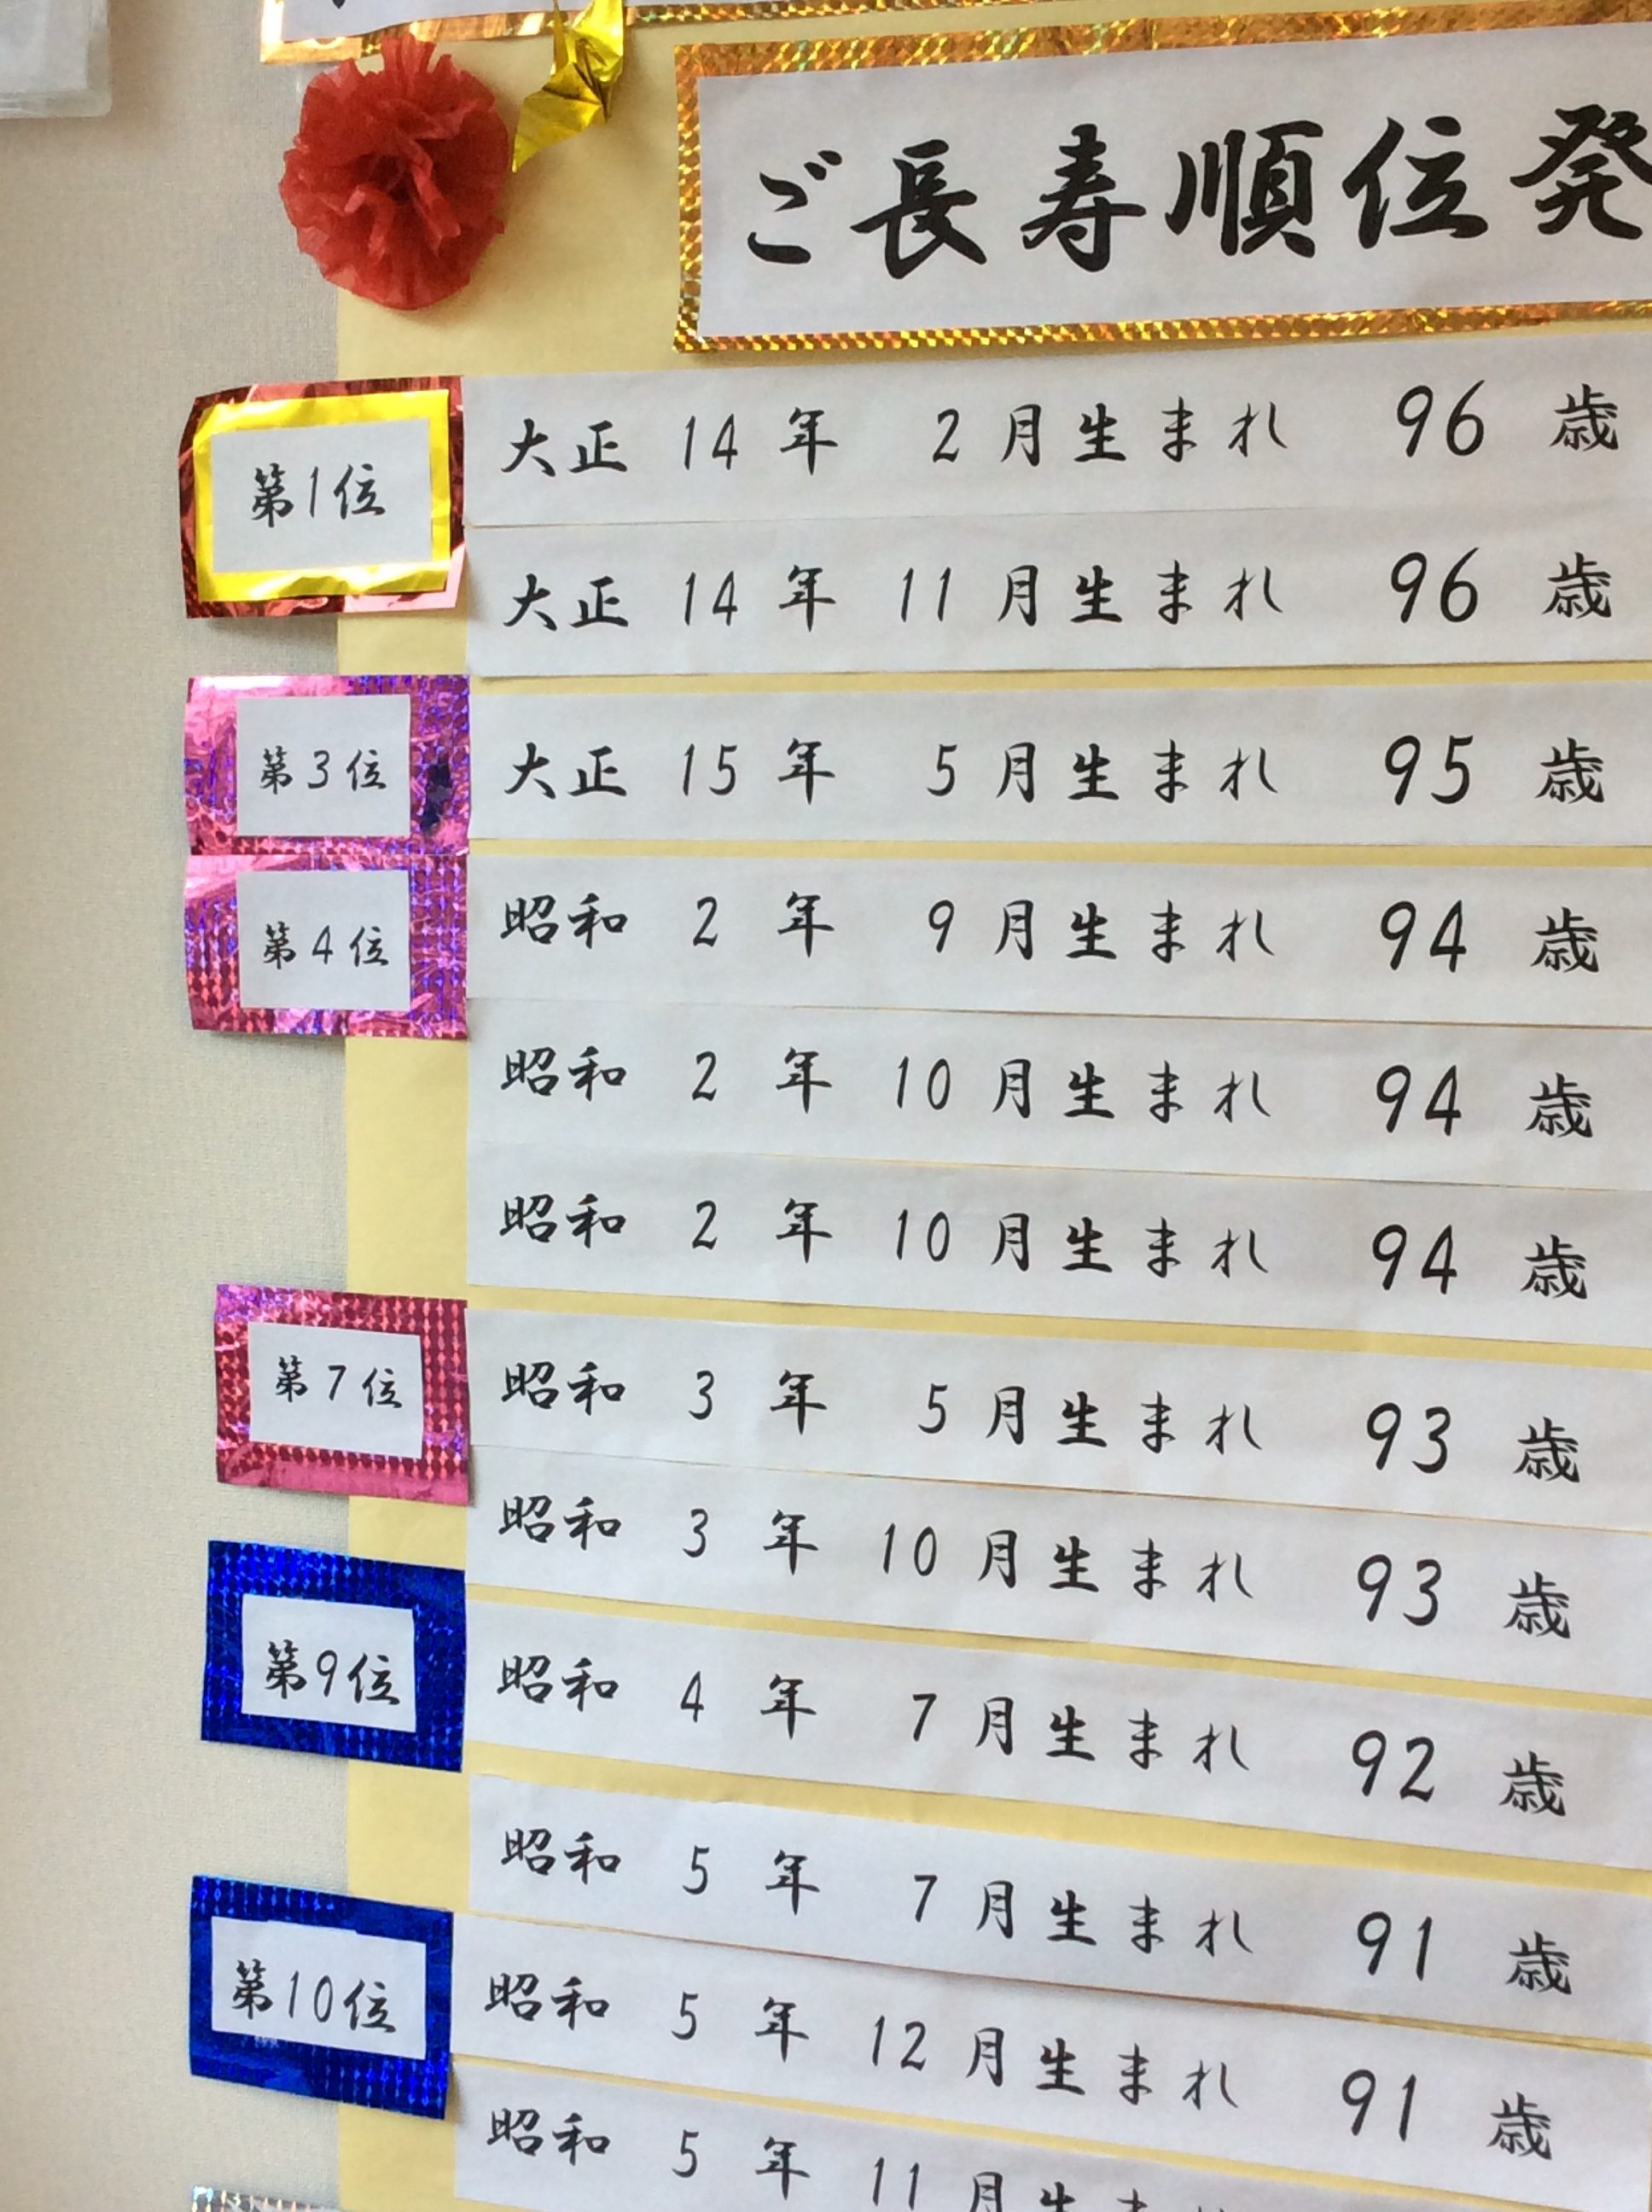 ご長寿順位発
第1位 大正 14 年 2 月生まれ 96 歳
大正 14 年 11 月生まれ 96 歳
第3位 大正 15 年 5 月生まれ 95 歳
第4位 昭和 2 年 9 月生まれ 94 歳
昭和 2 年 10 月生まれ 94 歳
昭和 2 年 10 月生まれ 94 歳
第7位 昭和 3 年 5 月生まれ 93 歳
昭和 3 年 10 月生まれ 93 歳
第9位 昭和 4 年 7 月生まれ 92 歳
昭和 5 年 7 月生まれ 91 歳
第10位 昭和 5 年 12 月生まれ 91 歳
昭和 5 年 11 月生まれ